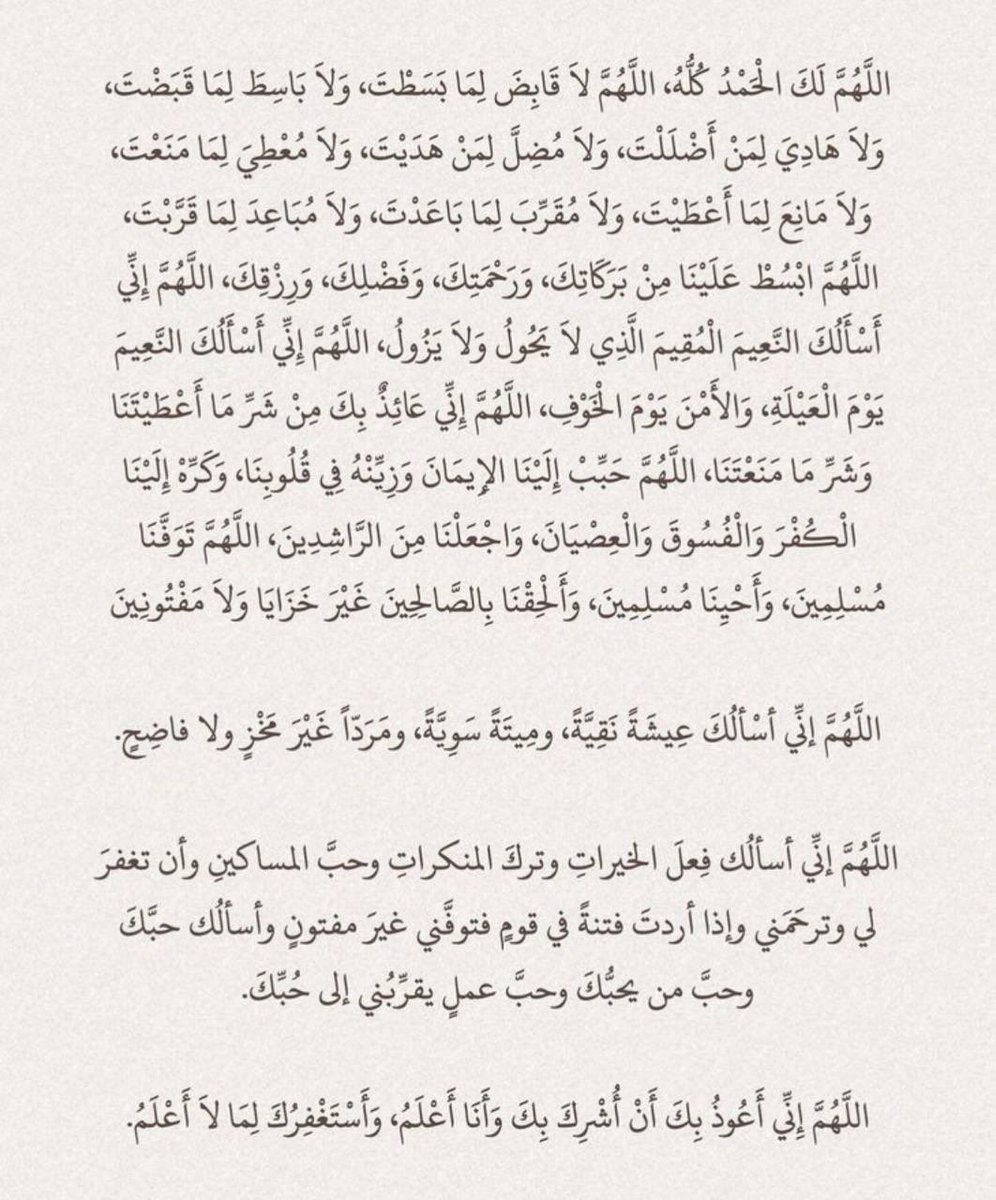 اللَّهُمَّ لَكَ الْحَمْدُ كُلُّهُ، اللَّهُمَّ لاَ قَابِضَ لِمَا بَسَطْتَ، وَلاَ بَاسِطَ لِمَا قَبَضْتَ،
وَلاَ هَادِيَ لِمَنْ أَضْلَلْتَ، وَلاَ مُضِلَّ لِمَنْ هَدَيْتَ، وَلاَ مُعْطِيَ لِمَا مَنَعْتَ،
وَلاَ مَانِعَ لِمَا أَعْطَيْتَ، وَلاَ مُقَرِّبَ لِمَا بَاعَدْتَ، وَلاَ مُبَاعِدَ لِمَا قَرَّبْتَ،
اللَّهُمَّ ابْسُطْ عَلَيْنَا مِنْ بَرَكَاتِكَ، وَرَحْمَتِكَ، وَفَضْلِكَ، وَرِزْقِكَ، اللَّهُمَّ إِنِّي
أَسْأَلُكَ النَّعِيمَ الْمُقِيمَ الَّذِي لاَ يَحُولُ وَلاَ يَزُولُ، اللَّهُمَّ إِنِّي أَسْأَلُكَ النَّعِيمَ
يَوْمَ الْعَيْلَةِ، وَالأَمْنَ يَوْمَ الْخَوْفِ، اللَّهُمَّ إِنِّي عَائِذٌ بِكَ مِنْ شَرِّ مَا أَعْطَيْتَنَا
وَشَرِّ مَا مَنَعْتَنَا، اللَّهُمَّ حَبِّبْ إِلَيْنَا الإِيمَانَ وَزِيِّنْهُ فِي قُلُوبِنَا، وَكَرِّهْ إِلَيْنَا
الْكُفْرَ وَالْفُسُوقَ وَالْعِصْيَانَ، وَاجْعَلْنَا مِنَ الرَّاشِدِينَ، اللَّهُمَّ تَوَفَّنَا
مُسْلِمِينَ، وَأَحْيِنَا مُسْلِمِينَ، وَأَلْحِقْنَا بِالصَّالِحِينَ غَيْرَ خَزَايَا وَلاَ مَفْتُونِينَ
اللَّهُمَّ إنِّي أسْألُكَ عِيشَةً نَقِيَّةً، ومِيتَةً سَوِيَّةً، ومَرَدّاً غَيْرَ مَخْزٍ ولا فاضِحٍ.
اللَّهُمَّ إنِّي أسألُك فِعلَ الخيراتِ وتركَ المنكراتِ وحبَّ المساكينِ وأن تغفرَ
لي وترحَمَني وإذا أردتَ فتنةً في قومٍ فتوفَّني غيرَ مفتونٍ وأسألُك حبَّكَ
وحبَّ من يحبُّكَ وحبَّ عملٍ يقرِّبُني إلى حُبِّكَ.
اللَّهُمَّ إِنِّي أَعُوذُ بِكَ أَنْ أُشْرِكَ بِكَ وَأَنَا أَعْلَمُ، وَأَسْتَغْفِرُكَ لِمَا لاَ أَعْلَمُ.